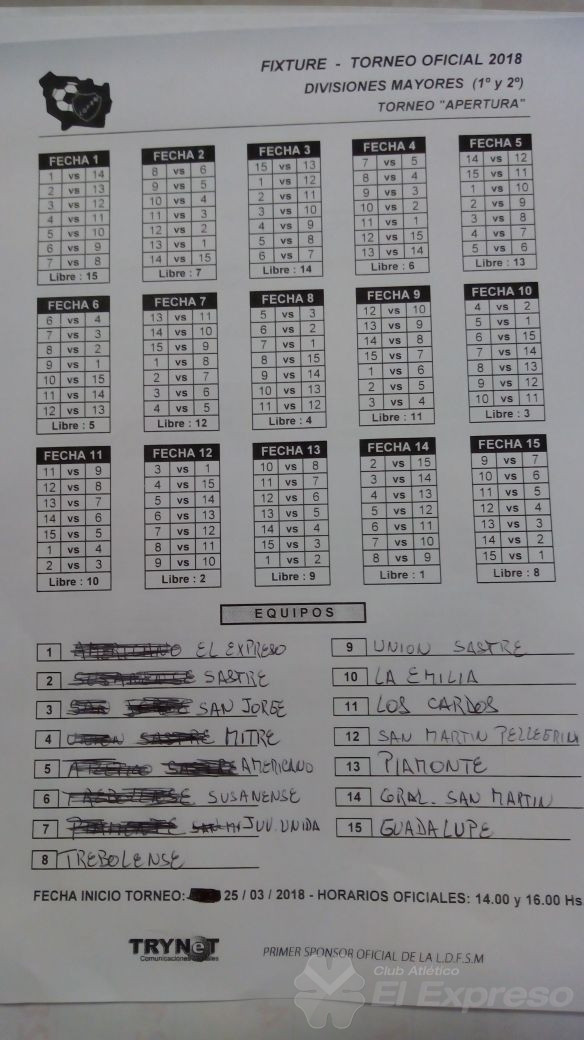 FIXTURE - TORNEO OFICIAL 2018
DIVISIONES MAYORES (1º y 2º)
TORNEO "APERTURA"
FECHA 1
1 vs 14
2 vs 13
3 vs 12
4 vs 11
5 vs 10
6 vs 9
7 vs 8
Libre : 15
FECHA 2
8 vs 6
9 vs 5
10 vs 4
11 vs 3
12 vs 2
13 vs 1
14 vs 15
Libre : 7
FECHA 3
15 vs 13
1 vs 12
2 vs 11
3 vs 10
4 vs 9
5 vs 8
6 vs 7
Libre : 14
FECHA 4
7 vs 5
8 vs 4
9 vs 3
10 vs 2
11 vs 1
12 vs 15
13 vs 14
Libre : 6
FECHA 5
14 vs 12
15 vs 11
1 vs 10
2 vs 9
3 vs 8
4 vs 7
5 vs 6
Libre : 13
FECHA 6
6 vs 4
7 vs 3
8 vs 2
9 vs 1
10 vs 15
11 vs 14
12 vs 13
Libre : 5
FECHA 7
13 vs 11
14 vs 10
15 vs 9
1 vs 8
2 vs 7
3 vs 6
4 vs 5
Libre : 12
FECHA 8
5 vs 3
6 vs 2
7 vs 1
8 vs 15
9 vs 14
10 vs 13
11 vs 12
Libre : 4
FECHA 9
12 vs 10
13 vs 9
14 vs 8
15 vs 7
1 vs 6
2 vs 5
3 vs 4
Libre : 11
FECHA 10
4 vs 2
5 vs 1
6 vs 15
7 vs 14
8 vs 13
9 vs 12
10 vs 11
Libre : 3
FECHA 11
11 vs 9
12 vs 8
13 vs 7
14 vs 6
15 vs 5
1 vs 4
2 vs 3
Libre : 10
FECHA 12
3 vs 1
4 vs 15
5 vs 14
6 vs 13
7 vs 12
8 vs 11
9 vs 10
Libre : 2
FECHA 13
10 vs 8
11 vs 7
12 vs 6
13 vs 5
14 vs 4
15 vs 3
1 vs 2
Libre : 9
FECHA 14
2 vs 15
3 vs 14
4 vs 13
5 vs 12
6 vs 11
7 vs 10
8 vs 9
Libre : 1
FECHA 15
9 vs 7
10 vs 6
11 vs 5
12 vs 4
13 vs 3
14 vs 2
15 vs 1
Libre : 8
EQUIPOS
1 EL EXPRESO
2 SASTRE
3 SAN JORGE
4 MITRE
5 AMERICANO
6 SUSANENSE
7 JUV. UNIDA
8 TREBOLENSE
9 UNION SASTRE
10 LA EMILIA
11 LOS CARDOS
12 SAN MARTIN PELLEGRINI
13 PIAMONTE
14 GRAL. SAN MARTIN
15 GUADALUPE
FECHA INICIO TORNEO: 25 / 03 / 2018 - HORARIOS OFICIALES: 14.00 y 16.00 Hs
TRYNET
Comunicaciones
PRIMER SPONSOR OFICIAL DE LA L.D.F.S.M
Club Atlético
El Expreso